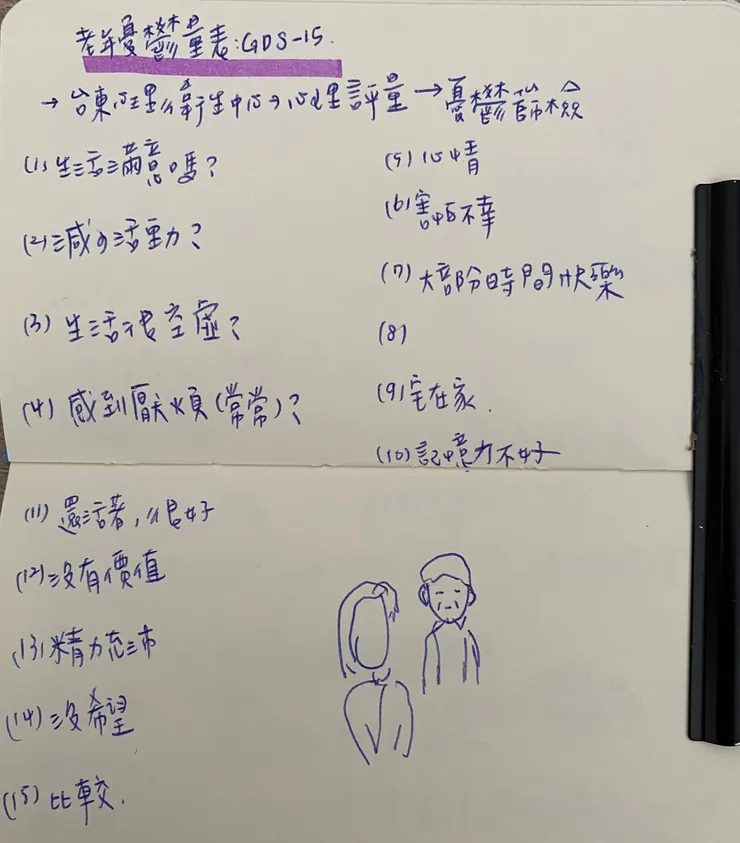 老年憂鬱量表:GDS-15.
→台東心理衛生中心→心理評量→憂鬱篩檢
(1)生活滿意嗎?
(2)減少活動?
(3)生活很空虛?
(4)感到厭煩(常常)?
(5)心情
(6)害怕不幸
(7)大部份時間快樂
(8)
(9)宅在家.
(10)記憶力不好
(11)還活著,很好
(12)沒有價值
(13)精力充沛
(14)沒希望
(15)比較.